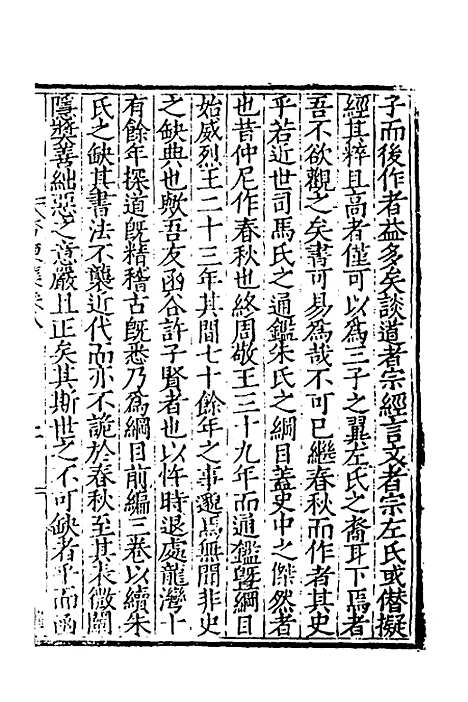 子而後作者益多矣談道者宗經言文者宗左氏或僣擬
經其粹且高者僅可以為三子之翼左氏之裔耳下焉者
吾不欲觀之矣書可易為哉不可已繼春秋而作者其史
乎若近世司馬氏之通鑑朱氏之綱目蓋史中之傑然者
也昔仲尼作春秋也終周敬王三十九年而通鑑曁綱目
始威烈王二十三年其間七十餘年之事邈焉無聞非史
之缺典也歟吾友函谷許子賢者也以忤時退處龍灣十
有餘年探道旣精稽古旣悉乃為綱目前編三卷以續朱
氏之缺其書法不襲近代而亦不詭於春秋至其表微闡
隱奬善絀惡之意嚴且正矣其斯世之不可缺者乎而函